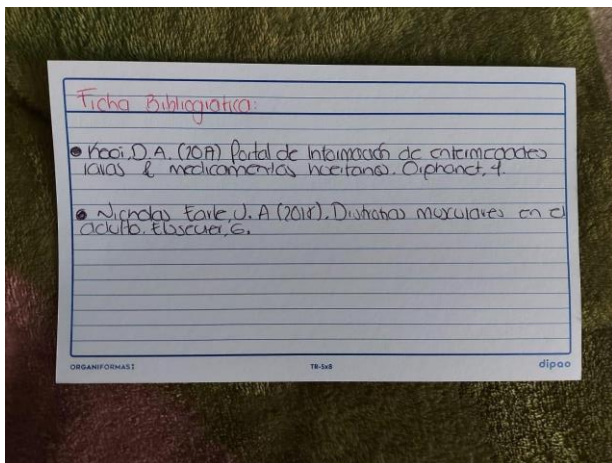 Ficha Bibliografica:
• Kooi, D.A. (2017) Portal de Información de enfermedades
raras & medicamentos hueifanos. Orphanet, 4.
• Nicholas Earle, J. A (2018). Distrofias musculares en el
adulto. Elsevier, 6.
ORGANIFORMAS I TR-5x8 dipao